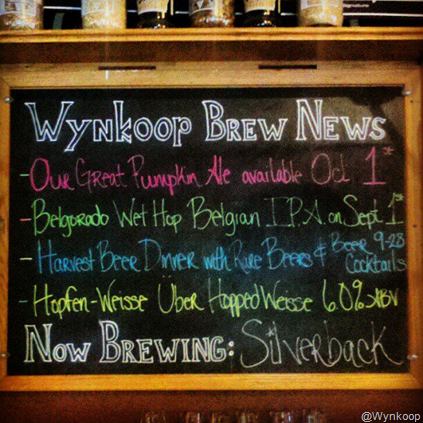 Wynkoop Brew News
- Our Great Pumpkin Ale available Oct 1st
- Belgorado Wet Hop Belgian I.P.A. on Sept 1st
- Harvest Beer Dinner with Rare Beers & Beer Cocktails 9-28
- Hopfen-Weisse Über Hopped Weisse 6.0% ABV
Now Brewing: Silverback
@Wynkoop